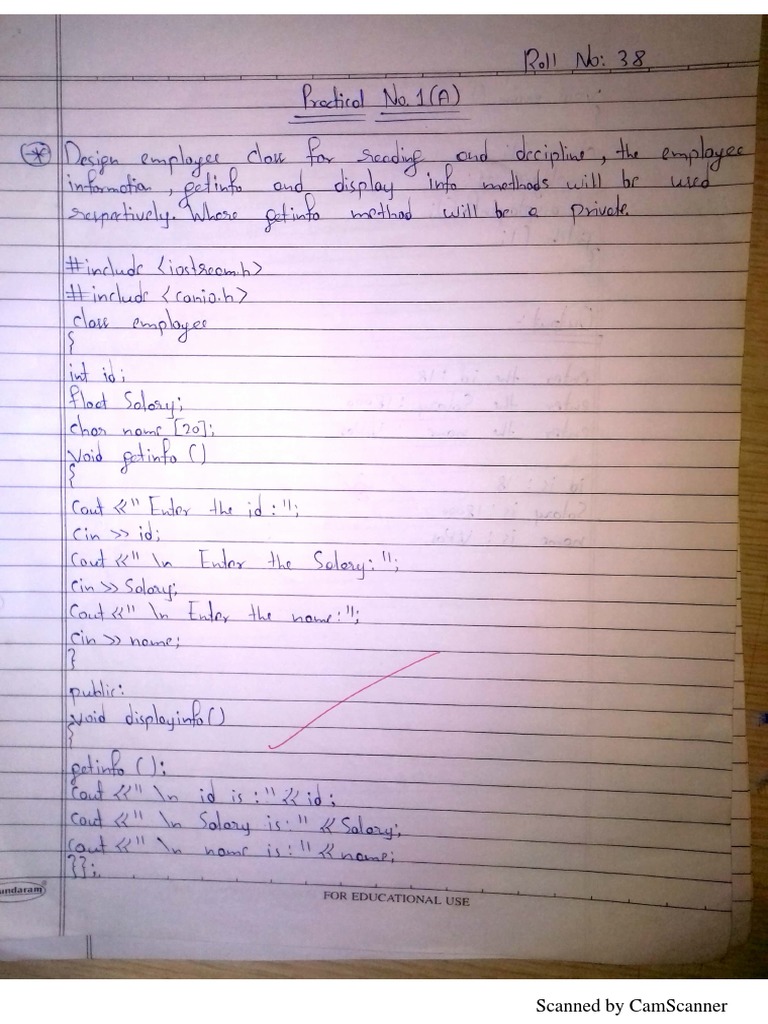 Roll No: 38
Practical No. 1(A)
Design employee class for reading and decipline, the employee
information, getinfo and display info methods will be used
respectively. Where getinfo method will be a private.
#include <iostream.h>
#include <conio.h>
class employee
{
int id;
float Salary;
char name [20];
void getinfo ()
{
Cout <<" Enter the id : ";
Cin >> id;
Cout <<" \n Enter the Salary: ";
Cin >> Salary;
Cout <<" \n Enter the name:";
Cin >> name;
}
public:
void displayinfo()
{
getinfo ();
Cout <<" \n id is :" << id;
Cout <<" \n Salary is:" << Salary;
Cout <<" \n name is:" << name;
}};
undaram
FOR EDUCATIONAL USE
Scanned by CamScanner